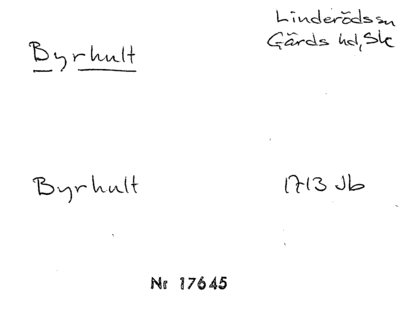 Linderöds sn
Byrhult
Gärds hd, Sk
Byrhult 1713 Jb
Nr 17645